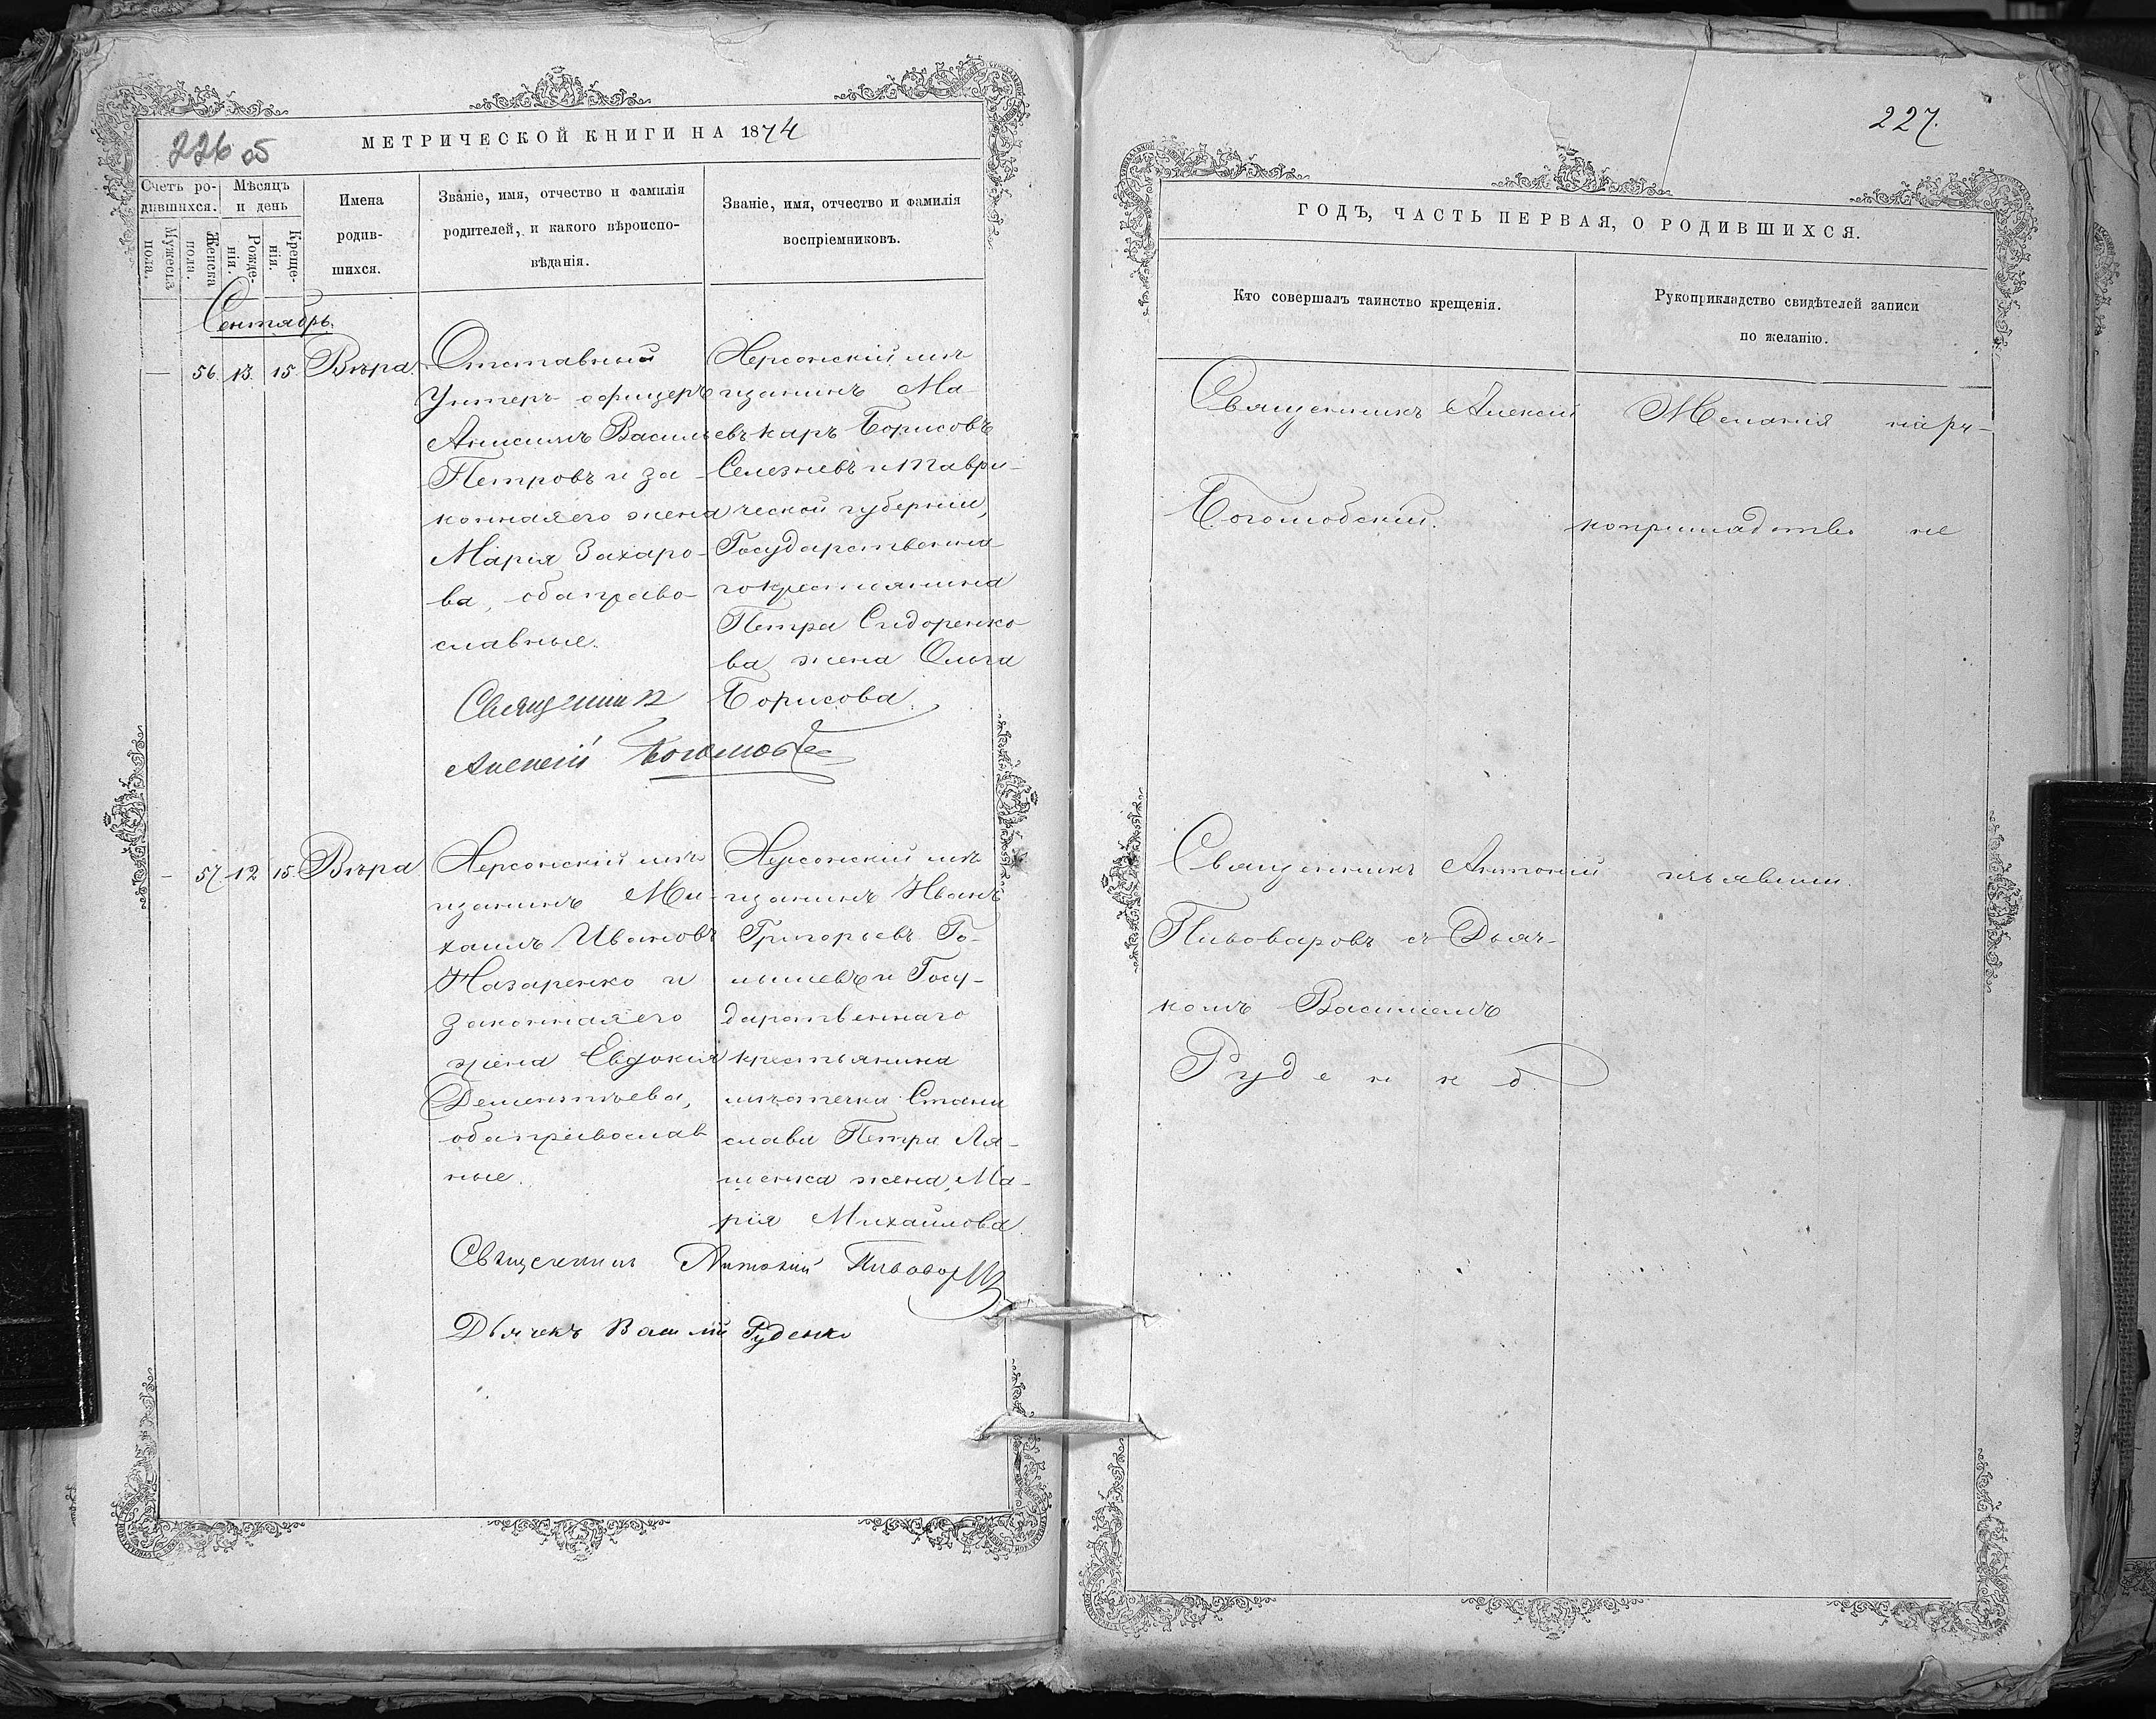 226 об
МЕТРИЧЕСКОЙ КНИГИ НА 1874
Счетъ ро-
дившихся.
Мужеска пола.
Женска пола.
Мѣсяцъ
и день
Рожде-
нія.
Креще-
нія.
Имена
родив-
шихся.
Званіе, имя, отчество и фамилія
родителей, и какого вѣроиспо-
вѣданія.
Званіе, имя, отчество и фамилія
воспріемниковъ.
Сентябрь.
— 56. 13. 15. Вѣра.
Отставный
Унтеръ офицеръ
Анисимъ Васильевъ
Петровъ и за-
конная его жена
Марія Захаро-
ва, оба право-
славные.
Херсонскій мѣ
щанинъ Ма-
каръ Борисовъ
Селезневъ и Таври-
ческой губерніи,
Государственна-
го крестьянина
Петра Сидоренко-
ва жена Ольга
Борисова.
Священникъ
Алексій
- 57. 12 15. Вѣра
Херсонскій мѣ
щанинъ Ми-
хаилъ Ивановъ
Назаренко и
законная его
жена Евдокія
Дементьева,
оба православ
ные.
Херсонскій мѣ
щанинъ Иванъ
Григорьевъ Го-
лышевъ и Госу-
дарственнаго
крестьянина
мѣстечка Стани
слава Петра Ля-
шенка жена Ма-
рія Михайлова
Священникъ Антоній Пивоваровъ
Дьячекъ Василій Руденко
227.
ГОДЪ, ЧАСТЬ ПЕРВАЯ, О РОДИВШИХСЯ.
Кто совершалъ таинство крещенія.
Рукоприкладство свидѣтелей записи
по желанію.
Священникъ Алексій
Боголюбскій.
Желанія на ру-
коприкладство не
Священникъ Антоній
Пивоваровъ съ Дьяч-
комъ Василіемъ
Руденко.
изъявили.